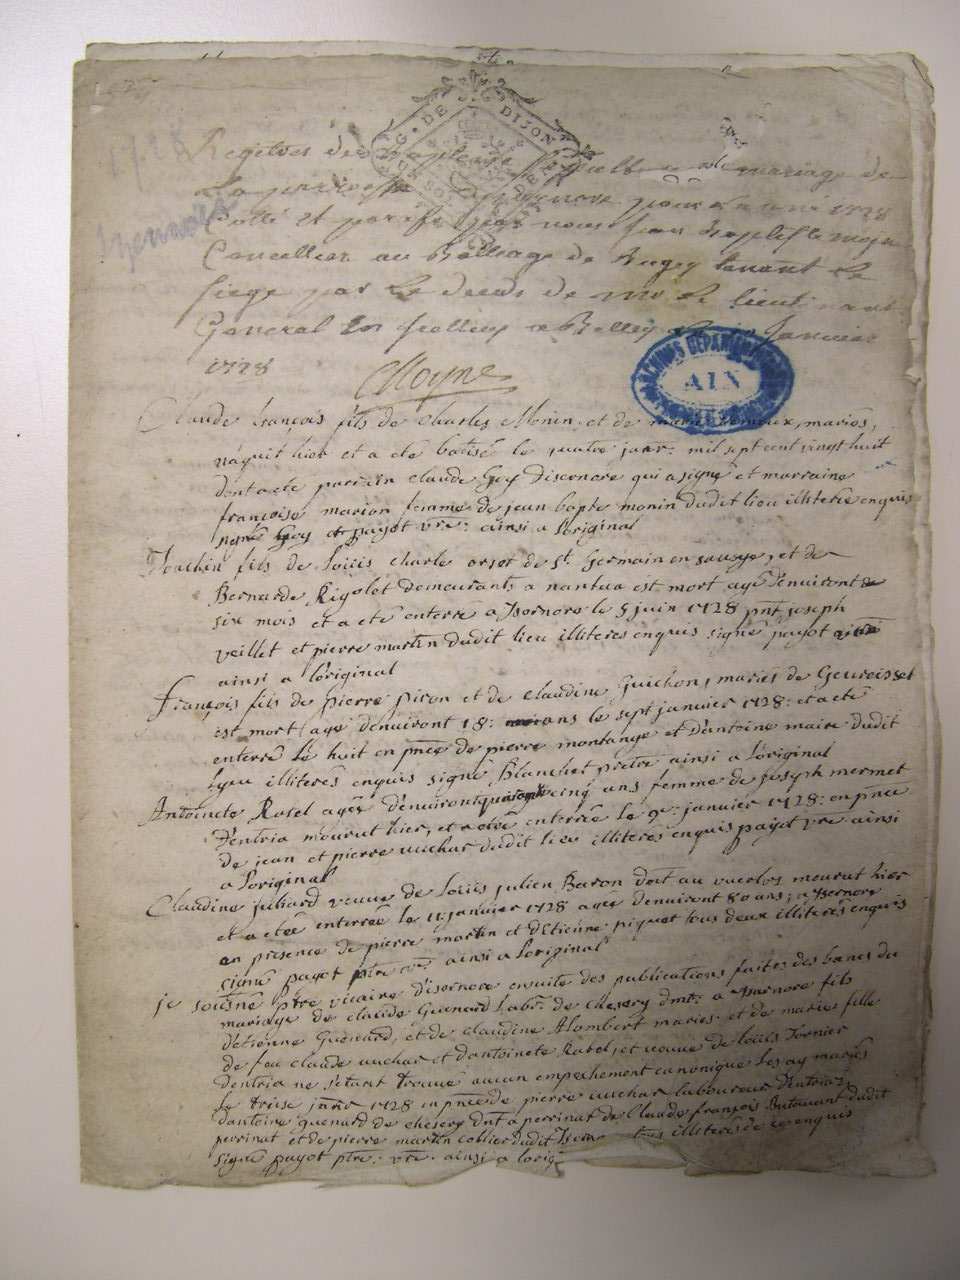 G. DE DIJON
1728
Registres des baptesme sepulture et mariage de
La parroisse Disernore pour l'année 1728
Cotté et paraffé par nous jean baptiste moyne
Conseiller au Balliage de Bugey tenant le
siege par le deceds de mr le lieutenant
General En feullens a Belley janvier
1728
CMoyne
ARCHIVES DEPARTEMENTALES
AIN
Claude françois fils de charles Monin et de marie mariés,
naquit hier et a eté batisé le quatre janr: mil sept cent vingt huit
dont a eté parrein claude Guy disernore qui a signé et marraine
françoise marion femme de jean bapte monin dudit lieu illiterée enquise
signé Guy et payot vre: ainsi a l'original
Joachin fils de Loüis charle orset de St. Germain en , et de
Bernarde Rigolet demeurants a nantua est mort agé d'environt
six mois et a eté enterré a Isernore le 5 juin 1728 pnt joseph
veillet et pierre martin dudit lieu illiterés enquis signé payot
ainsi a l'original
François fils de pierre piron et de claudine Guichon, mariés de Geuroisset
est mort agé denuiront 18: ans le sept janvier 1728: et a eté
enterré le huit en pnce de pierre montange et d'antoine maire dudit
Lyeu illiterés enquis signé Blanchet pretre ainsi a l'original
Antoinete Rosel agée d'enuiront cinq ans femme de joseph mermet
d'entria mourut hier, et a eté enterrée le 9e: janvier 1728: en pnce
de jean et pierre uuchar dudit lieu illiterés enquis payot vre ainsi
a l'original
Claudine julliard veuve de Loüis julien Baron doit au mourut hier
et a eté enterrée le 11 janvier 1728 agée denuiront 80 ans; a Isernore
en presence de pierre martin et d'Etienne piquet tous deux illiterés enquis
signé payot ptre vre: ainsi a l'original
je sousné ptre vicaire d'isernore ensuite des publications faites des bancs du
mariage de claude Guenard Labr: de chesery dmt: a Isernore fils
d'etienne Guenard, et de claudine Alombert mariés. et de marie fille
de feu claude uuchar et d'antoinete Rabel, et veuve de loüis Tornier
d'entria ne s'etant trouvé aucun empechement canonique Les ay mariés
Le treise janr 1728 en pnce de pierre uuchar laboureur d'entria;
dantoine guenard de chesery dmt a perrinat de Claude françois Butavant dudit
perrinat et de pierre martin collier dudit Isern tous illiterés de ce enquis
signé payot ptre: vre: ainsi a lorig